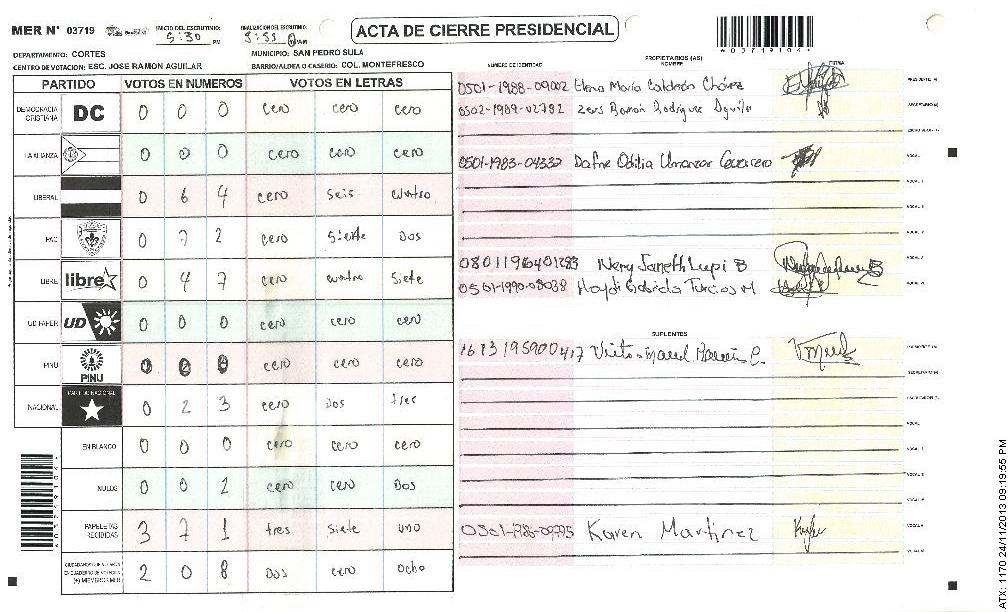 MER N° 03719
INICIO DEL ESCRUTINIO: 5:30 PM
FINALIZACION DEL ESCRUTINIO:
ACTA DE CIERRE PRESIDENCIAL
DEPARTAMENTO: CORTES
MUNICIPIO: SAN PEDRO SULA
CENTRO DE VOTACION: ESC. JOSE RAMON AGUILAR
BARRIO/ALDEA O CASERIO: COL. MONTEFRESCO
PARTIDO VOTOS EN NUMEROS VOTOS EN LETRAS
DEMOCRACIA CRISTIANA DC 0 0 0 cero cero cero
LA ALIANZA 0 0 0 cero cero cero
LIBERAL 0 6 4 cero seis cuatro
PAC 0 7 2 cero Siete Dos
LIBRE libre 0 4 7 cero cuatro siete
UD FAPER UD 0 0 0 cero cero cero
PINU PINU 0 0 0 cero cero cero
NACIONAL PARTIDO NACIONAL 0 2 3 cero Dos tres
EN BLANCO 0 0 0 cero cero cero
NULOS 0 0 2 cero cero Dos
PAPELETAS RECIBIDAS 3 7 1 tres siete uno
(+) MIEMBROS MER 2 0 8 Dos cero ocho
PROPIETARIOS (AS)
NUMERO DE IDENTIDAD NOMBRE FIRMA
0501-1988-09002 Elena María Calderón Chávez
0502-1989-02782
0501-1983-04332 Dafne Odilia Umanzor Guerrero
0801196401283 Nery Janeth Lupi B
0501-1990-08038 Haydi Gabriela Turcios M
SUPLENTES
1613195900417
Karen Martinez
ATX: 1170 24/11/2013 09:19:55 PM